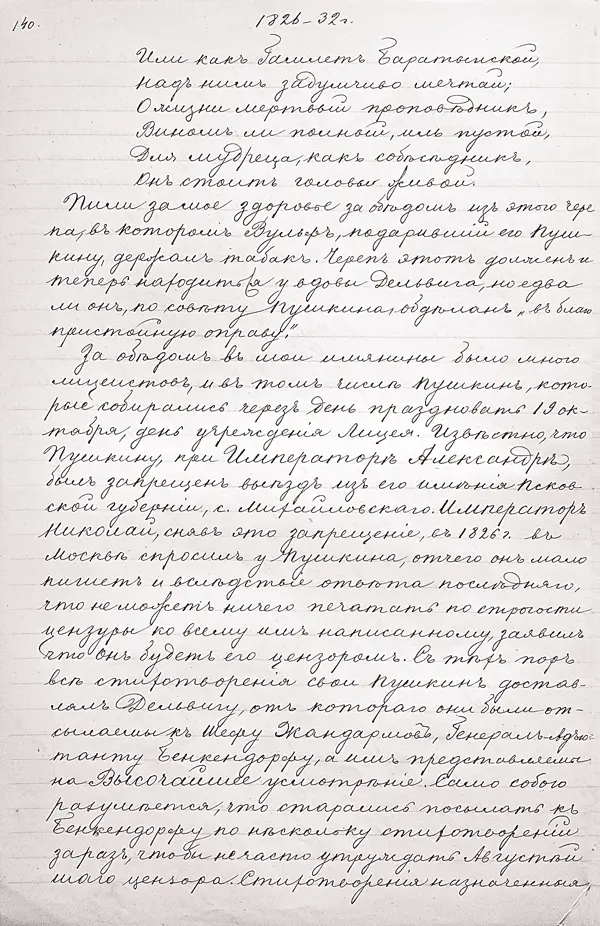 140.
1826-32 г.
Или какъ Гамлетъ Баратынской,
Надъ нимъ задумчиво мечтай;
О жизни мертвый проповѣдникъ,
Виномъ ли полный, иль пустой,
Для мудреца, какъ собѣсѣдникъ,
Онъ стоитъ головы живой.
Пили за мое здоровье за обѣдомъ изъ этого чере
па, въ которомъ Вульфъ, подарившій его Пуш-
кину, держалъ табакъ. Черепъ этотъ долженъ и
теперь находиться у вдовы Дельвига, но едва
ли онъ, по совѣту Пушкина, обдѣланъ „въ благо
пристойную оправу."
За обѣдомъ въ мои имянины было много
лицеистовъ, и въ томъ числѣ Пушкинъ, кото-
рые собирались черезъ день праздновать 19 ок-
тября, день учрежденія Лицея. Извѣстно, что
Пушкину, при Императорѣ Александрѣ,
былъ запрещенъ выѣздъ изъ его имѣнія Псков
ской губерніи, с. Михайловскаго. Императоръ
Николай, снявъ это запрещеніе, въ 1826 г. въ
Москвѣ спросилъ у Пушкина, отчего онъ мало
пишетъ и вслѣдствіе отвѣта послѣдняго,
что не можетъ ничего печатать по строгости
цензуры ко всему имъ написанному, заявилъ
что онъ будетъ его цензоромъ. Съ тѣхъ поръ
всѣ стихотворенія свои Пушкинъ достав-
лялъ Дельвигу, отъ котораго они были от-
сылаемы къ Шефу Жандармовъ, Генералъ-Адъю-
танту Бенкендорфу, а имъ представляемы
на Высочайшее усмотрѣніе. Само собою
разумѣется, что старались посылать къ
Бенкендорфу по нѣскольку стихотвореній
заразъ, чтобы не часто утруждать Августѣй
шаго цензора. Стихотворенія назначенныя,